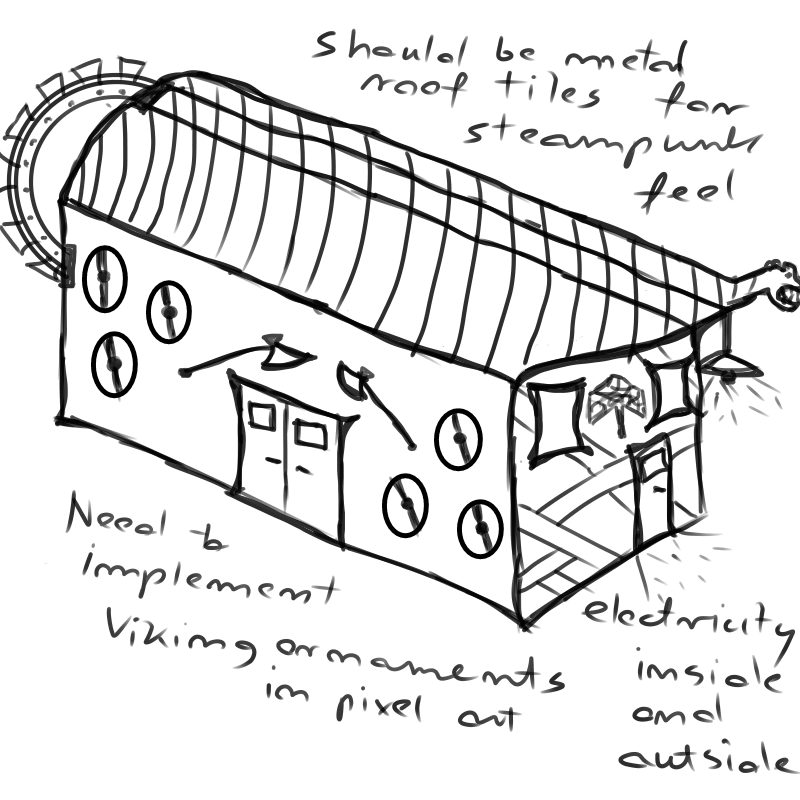 should be metal
roof tiles for
steampunk
feel
Need to
implement
Viking ornaments
in pixel art
electricity
inside
and
outside